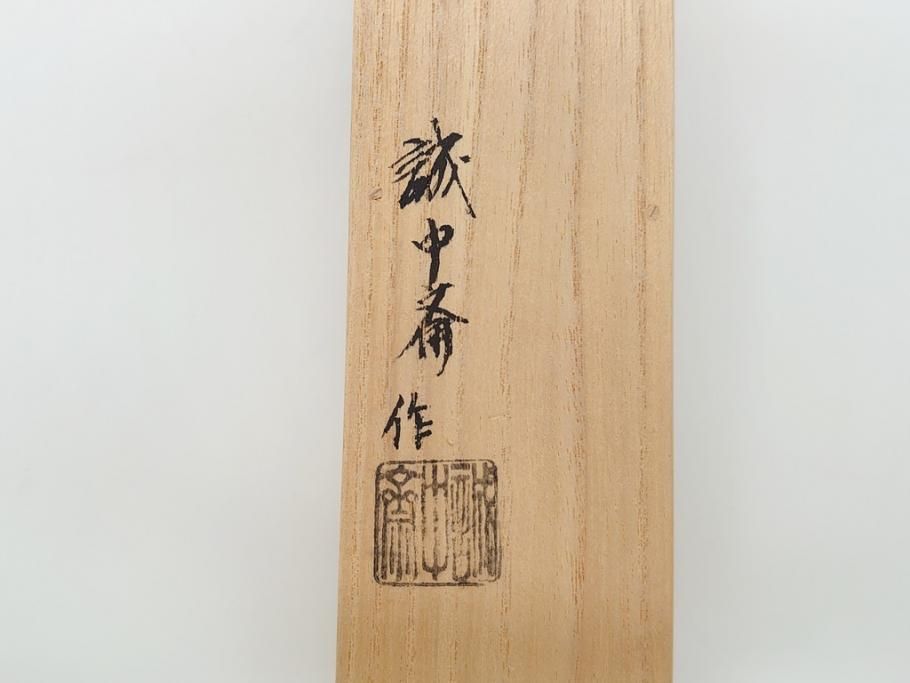 誠中斎 作
誠中斎